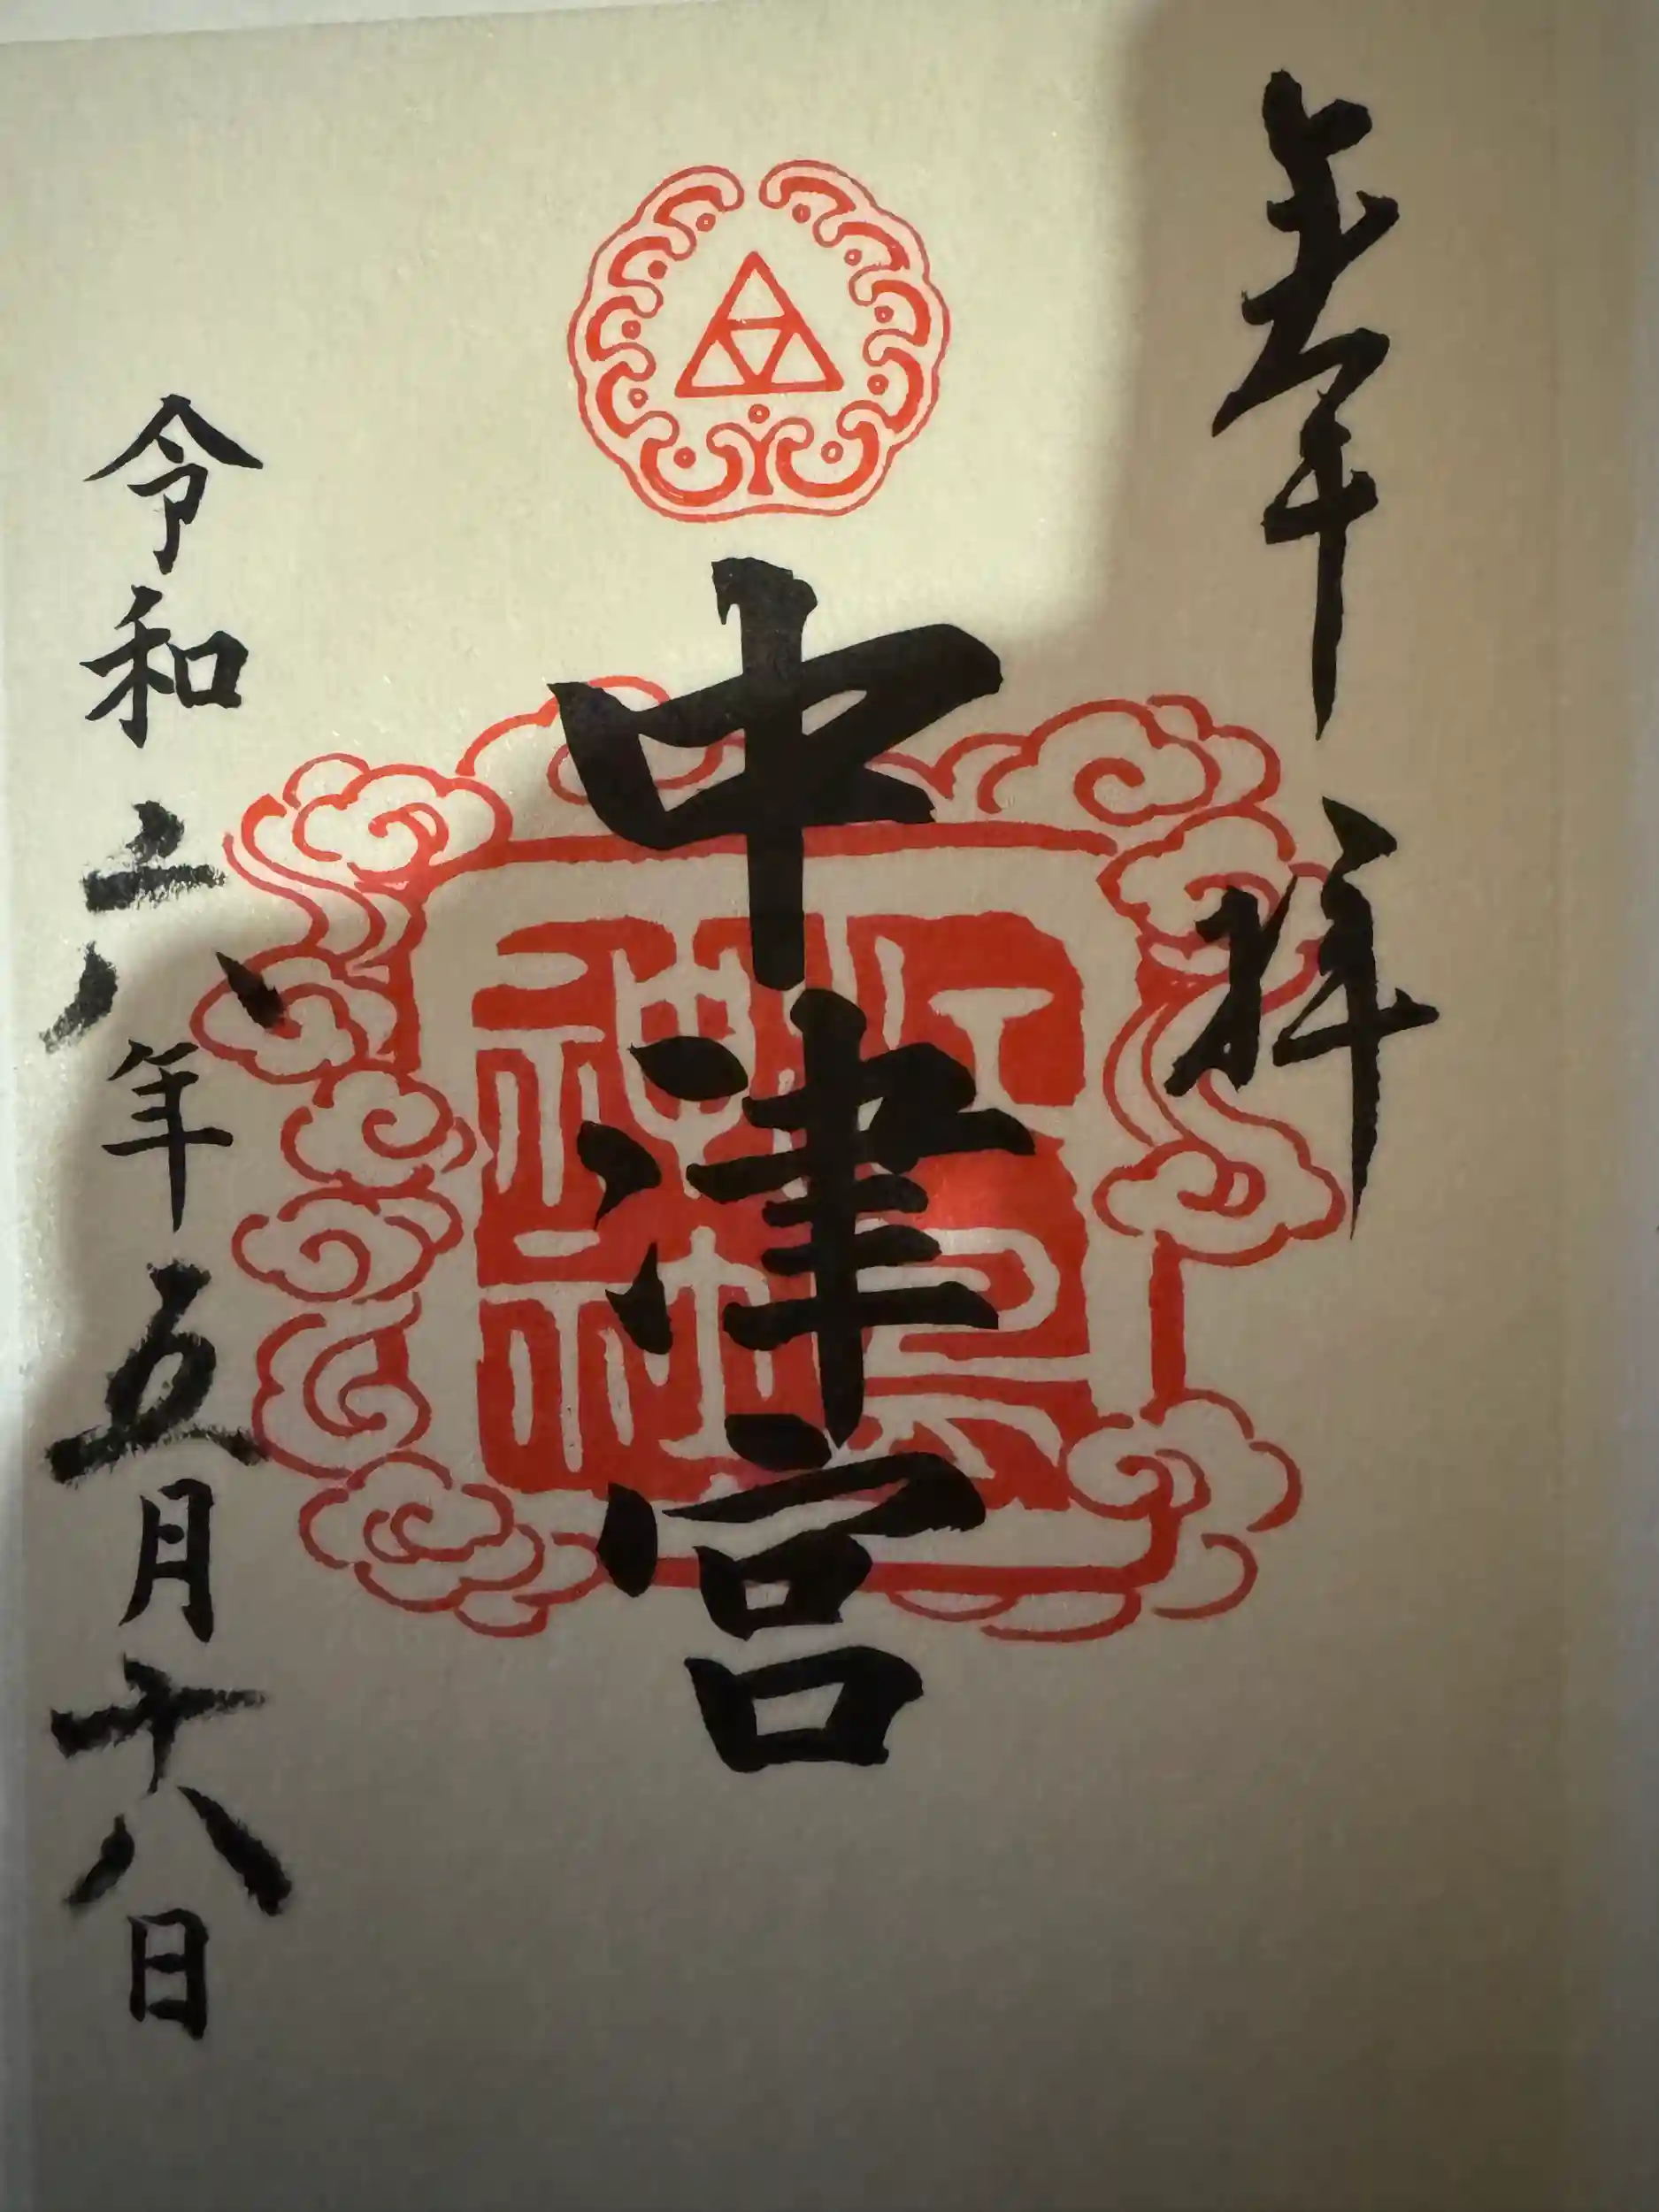 奉拝
中津宮
令和六年五月十八日